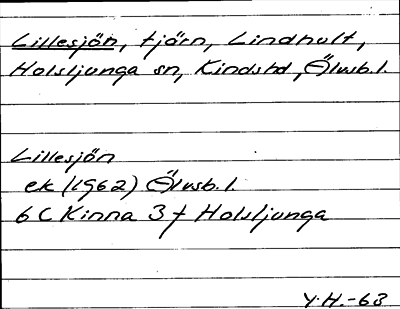 Lillesjön, tjärn, Lindhult,
Holsljunga sn, Kindshd, Älvsb.l.
Lillesjön
ek (1962) Älvsb.l
6 C Kinna 3 f Holsljunga
Y.H.-63